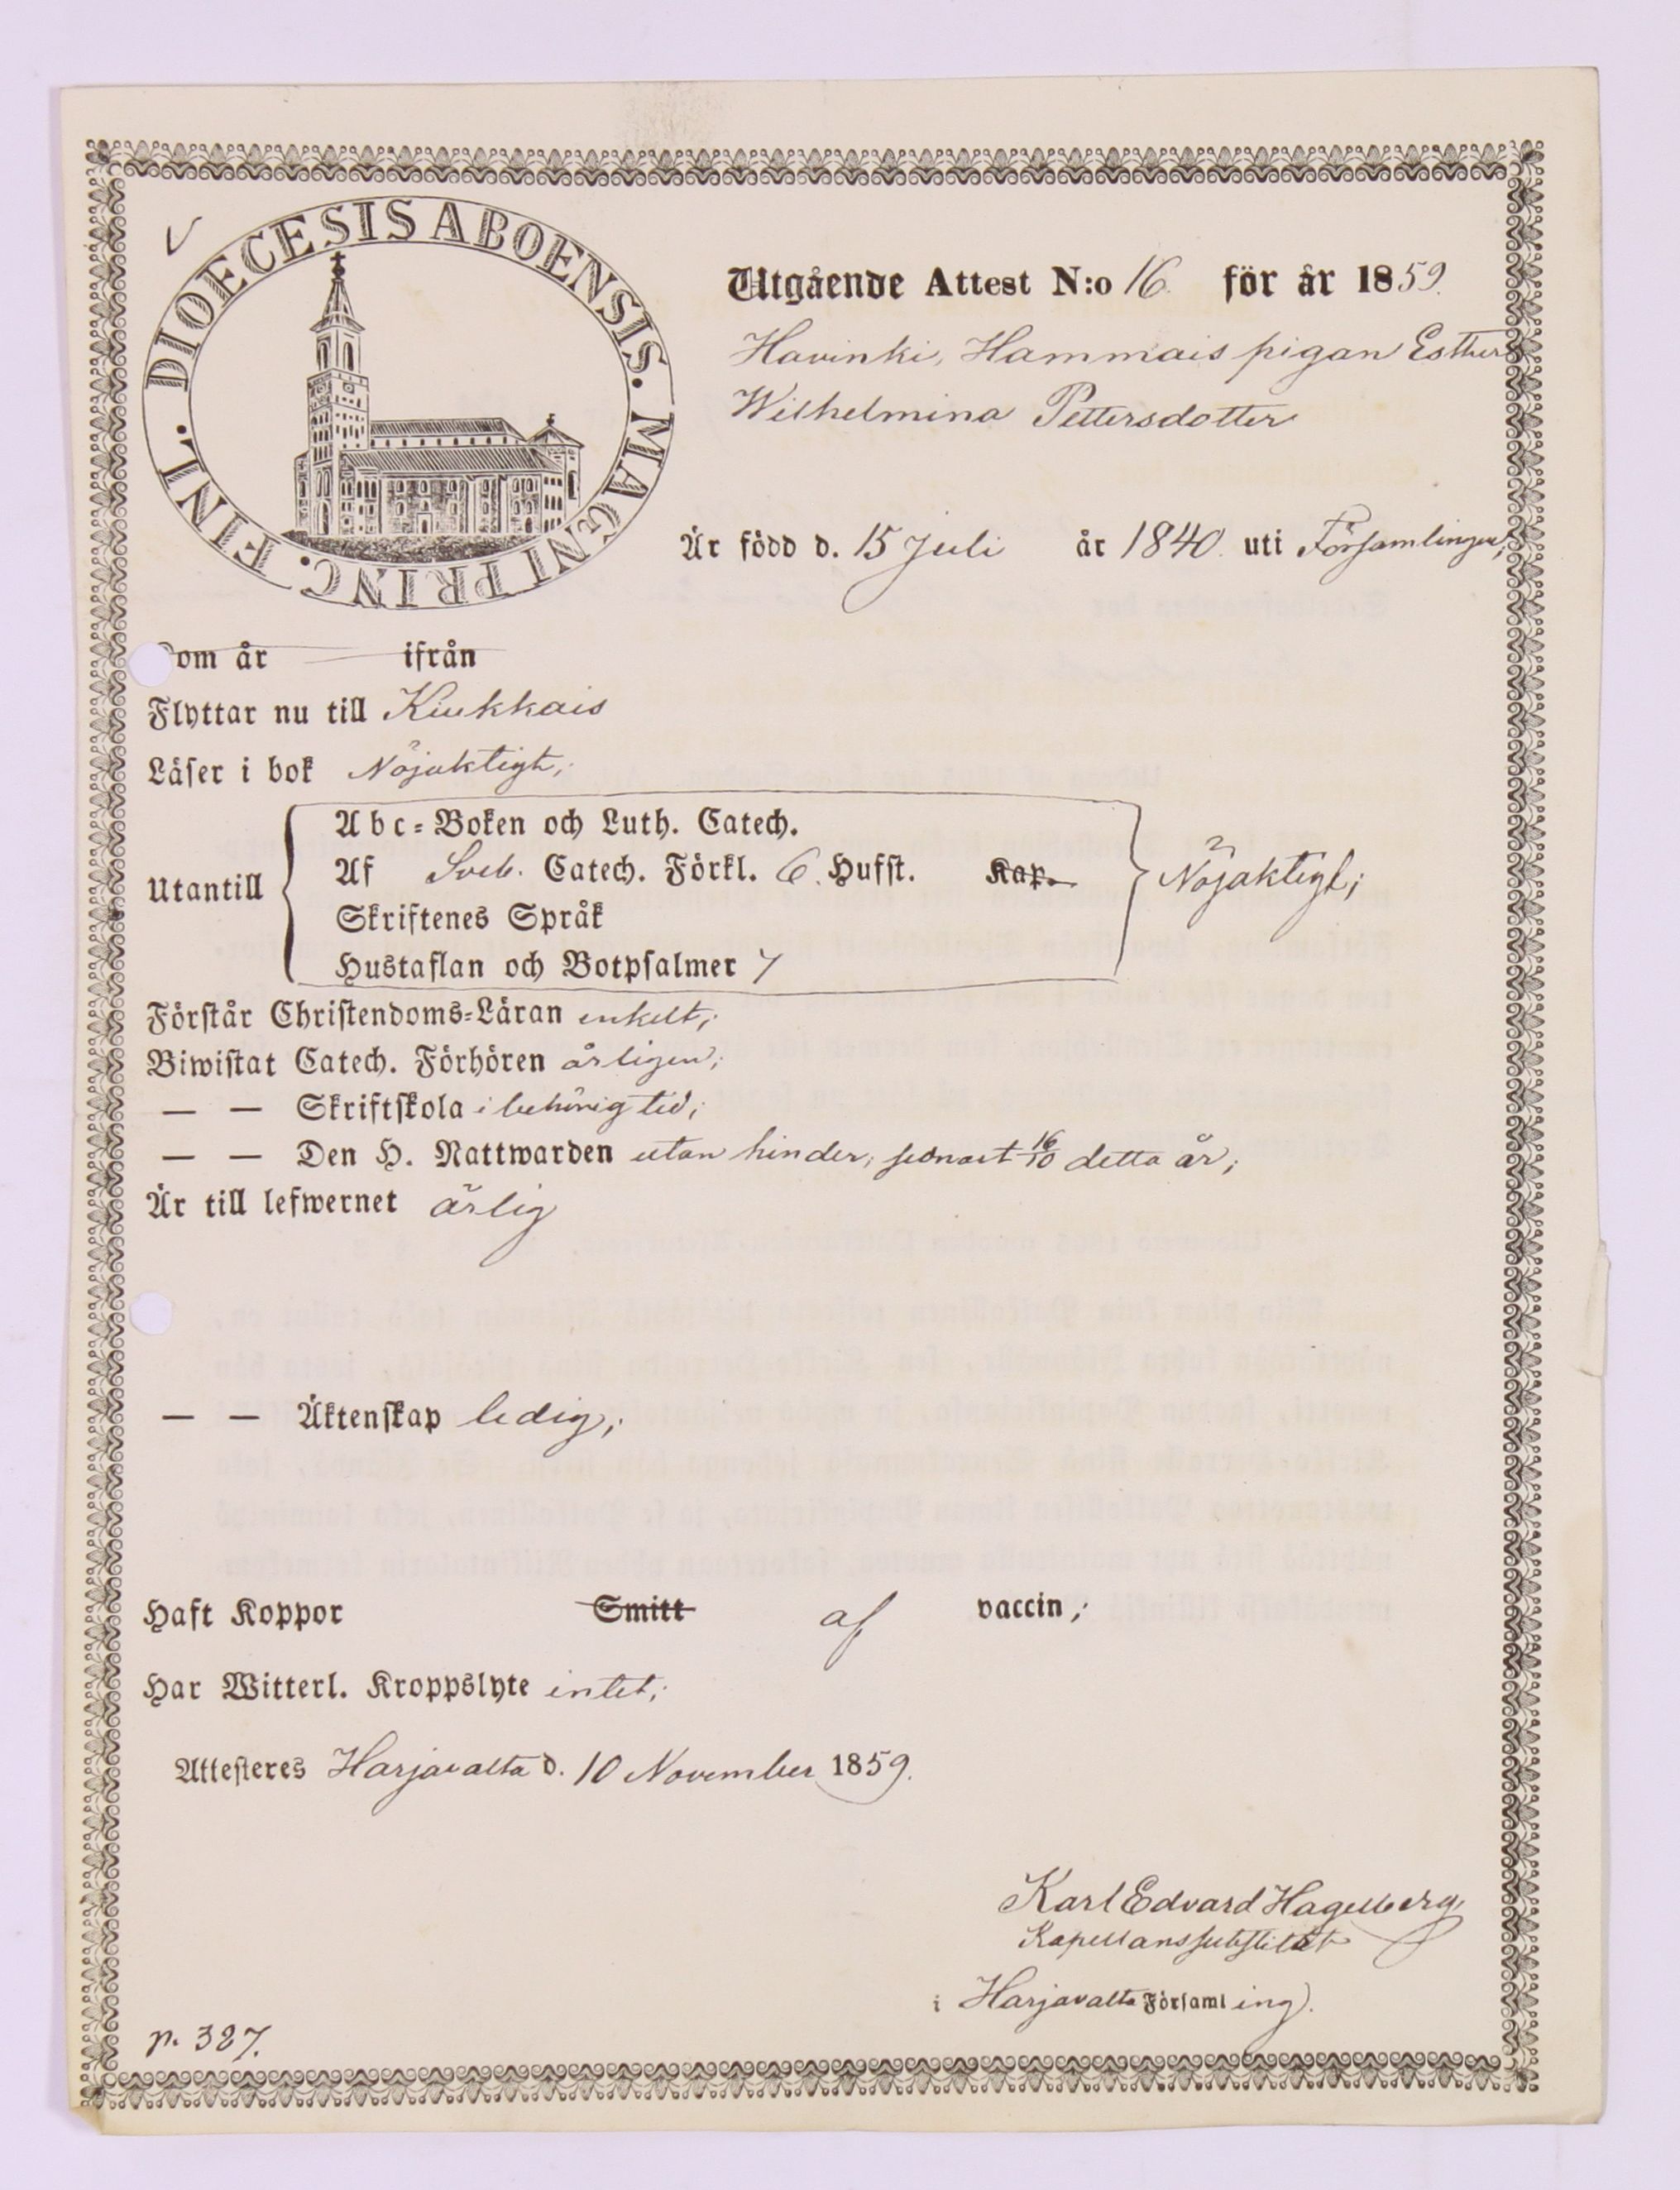 DIOECESIS ABOENSIS. MAGNI PRINC. FINL.
Utgående Attest N:o 16. för år 1859.
Havinki, Hammais pigan Esther
Wilhelmina Pettersdotter
Är född d. 15 Juli år 1840. uti Församlingen;
om år ifrån
Flyttar nu till Kiukkais
Läser i bok Nöjaktigt;
Utantill
Abc-Boken och Luth. Catech.
Af Sveb. Catech. Förkl. 6. Hufst. Kap.
Skriftenes Språk
Hustaflan och Botpsalmer 7
Nöjaktigt;
Förstår Christendoms-Läran enkelt;
Biwistat Catech. Förhören årligen;
— — Skriftskola i behörig tid;
— — Den H. Nattwarden utan hinder, senast 16/10 detta år;
Är till lefwernet ärlig
— — Äktenskap ledig;
Haft Koppor Smitt af vaccin;
Har Witterl. Kroppslyte intet;
Attesteres Harjavalta d. 10 November 1859.
Karl Edvard Hagelberg,
Kapellanssubstitut
i Harjavalta Församling).
p. 327.